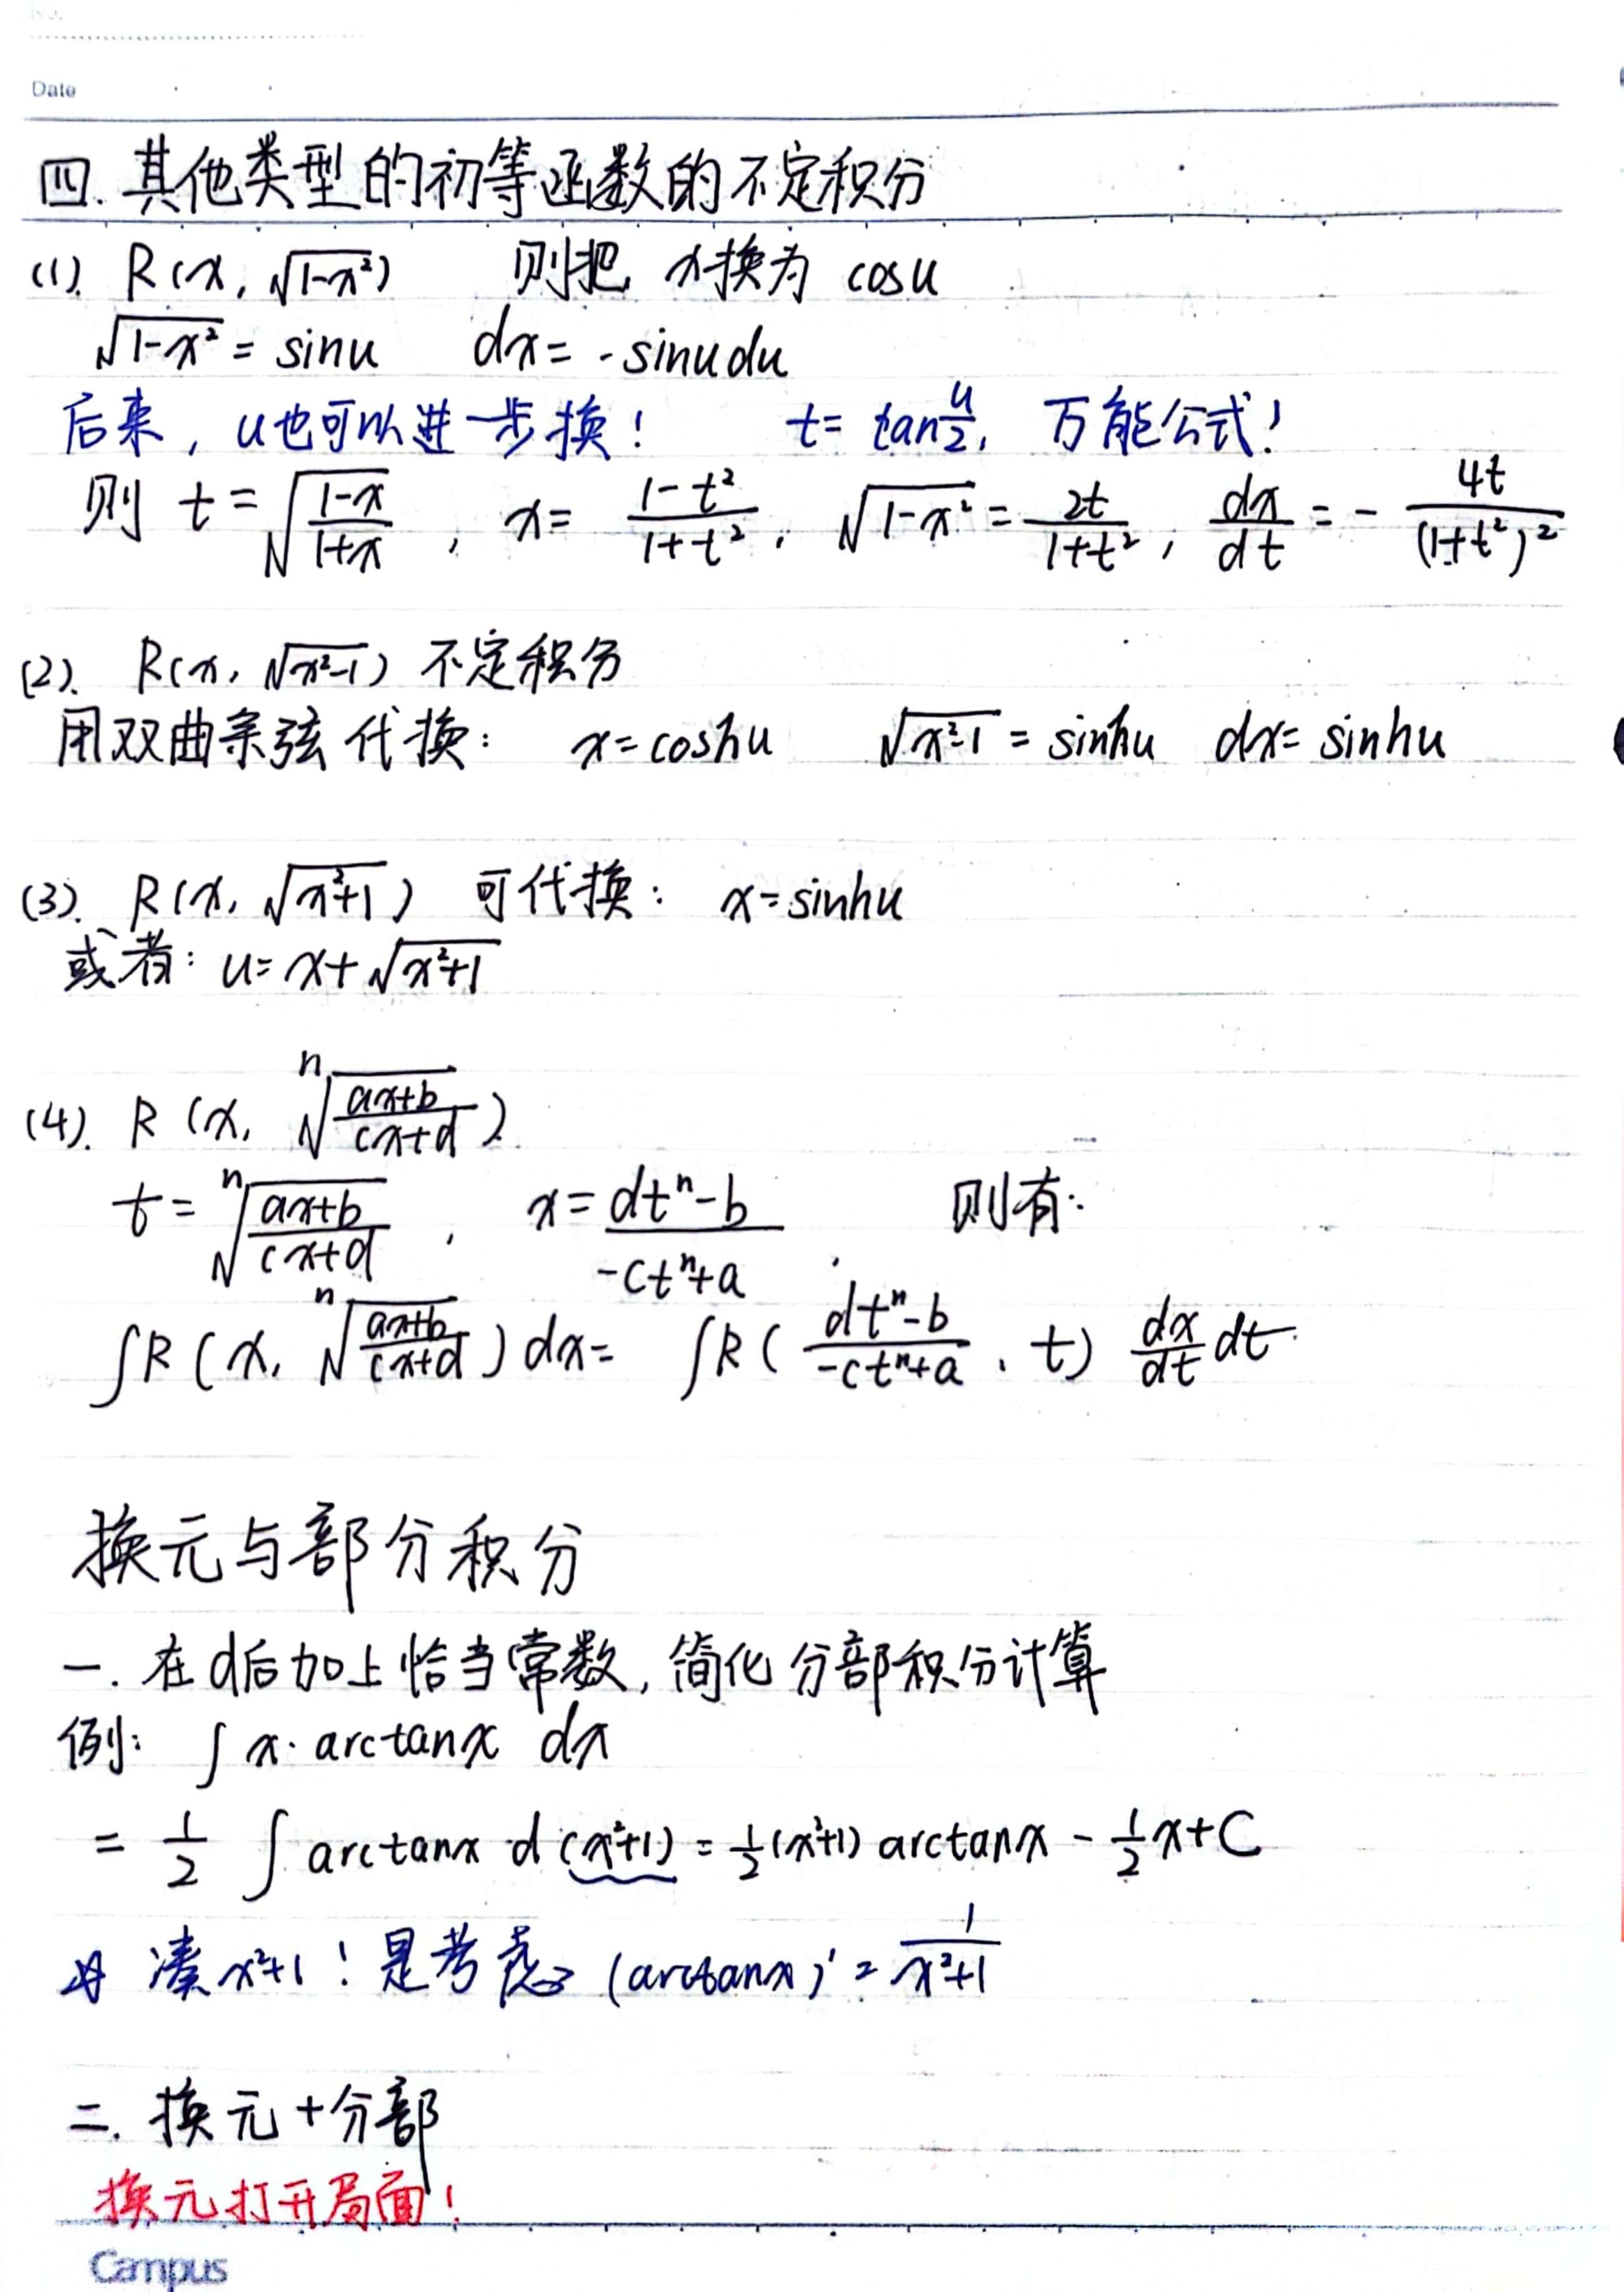 Date
四. 其他类型的初等函数的不定积分
(1). R(x, √(1-x²)) 则把 x换为 cosu
√(1-x²) = sinu dx = -sinudu
后来, u也可以进一步换! t = tan u/2, 万能公式!
则 t = √((1-x)/(1+x)), x = (1-t²)/(1+t²), √(1-x²) = 2t/(1+t²), dx/dt = - 4t/(1+t²)²
(2). R(x, √(x²-1)) 不定积分
用双曲余弦代换: x = coshu √(x²-1) = sinhu dx = sinhu
(3). R(x, √(x²+1)) 可代换: x = sinhu
或者: u = x + √(x²+1)
(4). R (x, ⁿ√((ax+b)/(cx+d)))
t = ⁿ√((ax+b)/(cx+d)), x = (dtⁿ-b)/(-ctⁿ+a) 则有:
∫R (x, ⁿ√((ax+b)/(cx+d))) dx = ∫R ((dtⁿ-b)/(-ctⁿ+a), t) dx/dt dt
换元与部分积分
一. 在d后加上恰当常数, 简化分部积分计算
例: ∫ x·arctanx dx
= 1/2 ∫ arctanx d(x²+1) = 1/2(x²+1) arctanx - 1/2x + C
凑x²+1! 是考虑 (arctanx)' = 1/(x²+1)
二. 换元+分部
换元打开局面!
Campus